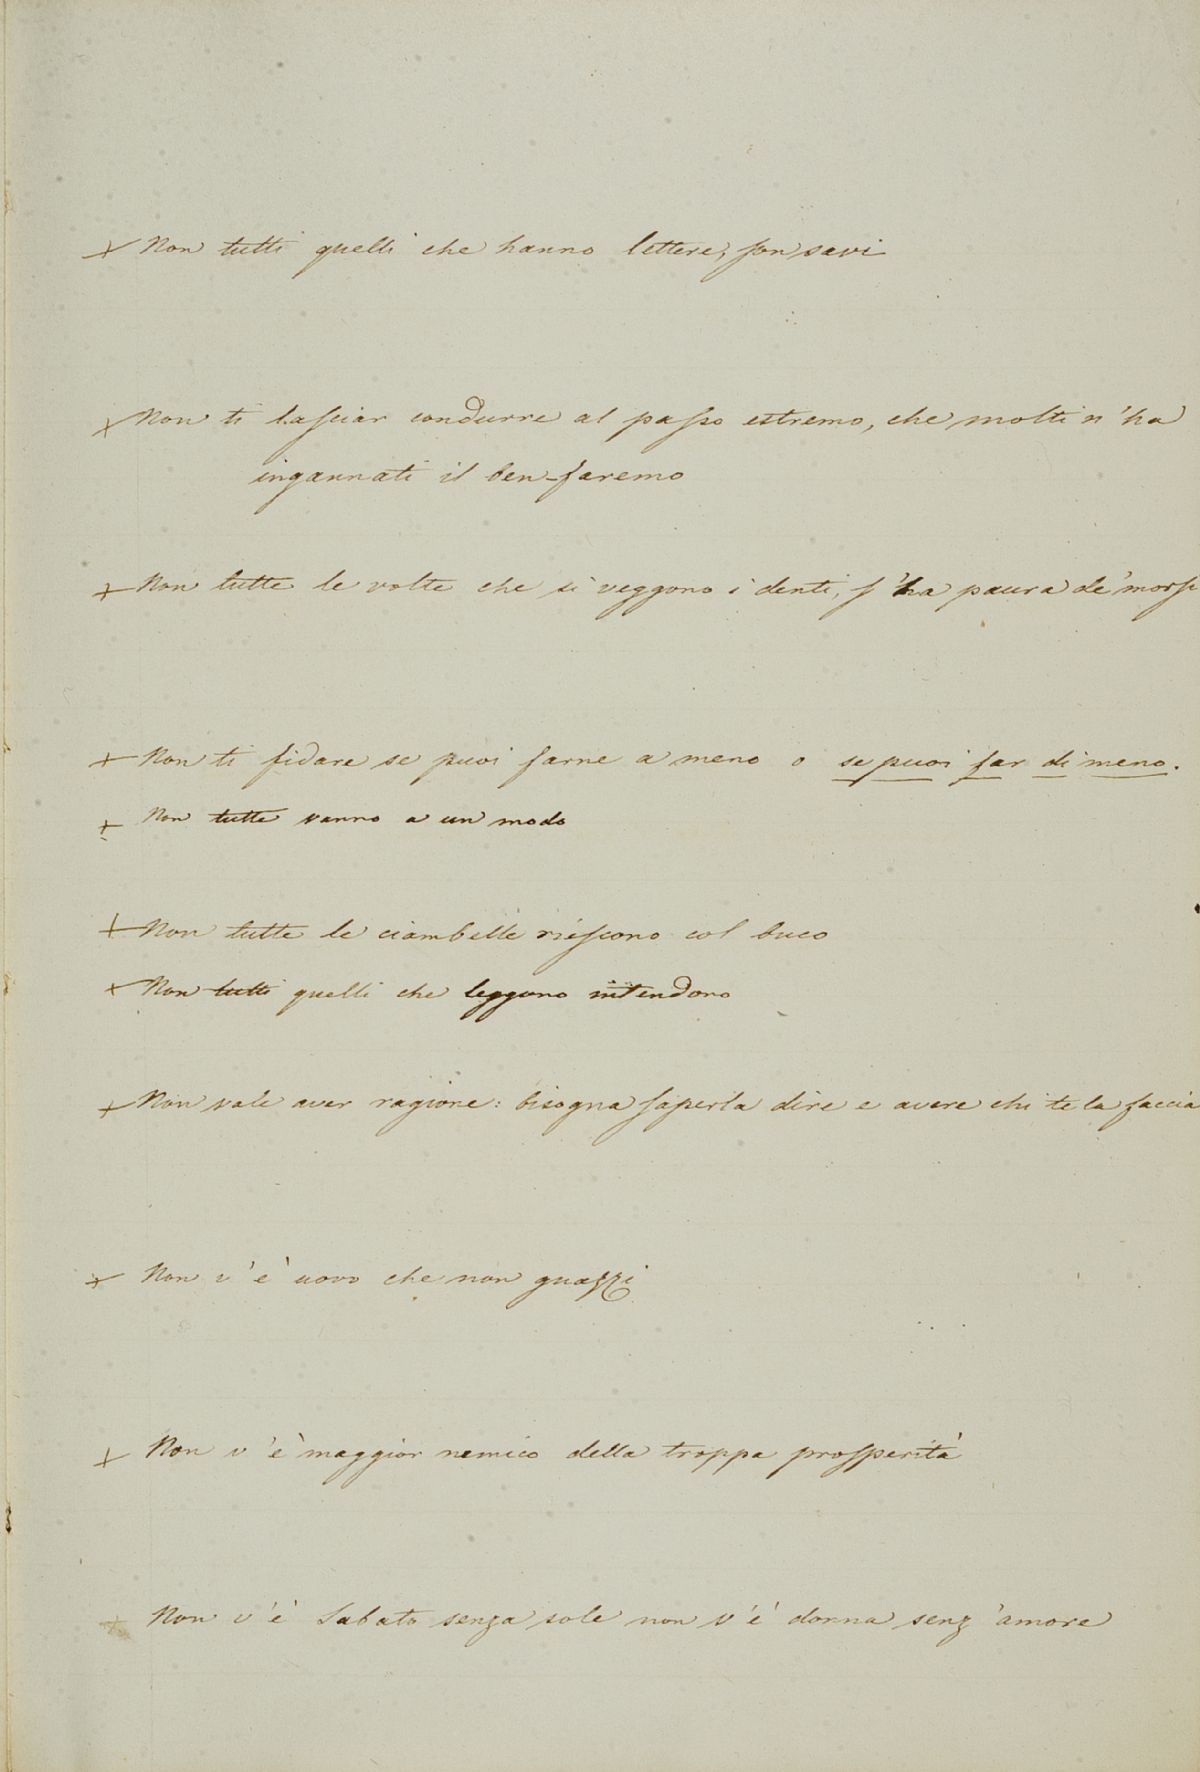 + Non tutti quelli che hanno lettere, son savi
+ Non ti lasciar condurre al passo estremo, che molti n'ha
ingannati il ben-faremo
+ Non tutte le volte che si veggono i denti, s'ha paura de'morsi
+ Non ti fidare se puoi farne a meno o se puoi far di meno.
+ Non tutte vanno a un modo
+ Non tutte le ciambelle riescono col buco
+ Non tutti quelli che leggono intendono
+ Non vale aver ragione: bisogna saperla dire e avere chi te la faccia
+ Non v'è uovo che non guazzi
+ Non v'è maggior nemico della troppa prosperità
+ Non v'è Sabato senza sole non v'è donna senz'amore